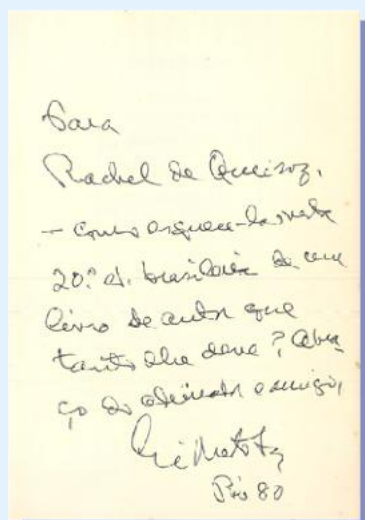 Para
Rachel de Queiroz,
– como esquecê-la nesta
20.ª ed. brasileira de um
livro de autor que
tanto lhe deve? Abra-
ço do admirador e amigo,
Rio 80